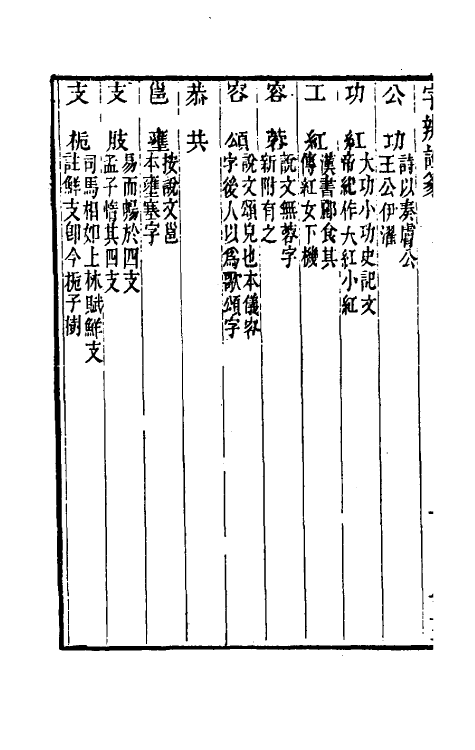 公 功 詩以奏膚公
王公伊濯
功 紅 大功小功史記文
帝紀作大紅小紅
工 紅 漢書酈食其
傳紅女下機
容 蓉 說文無蓉字
新附有之
容 頌 說文頌皃也本儀容
字後人以爲歌頌字
恭 共
邕 壅 按說文邕
本壅塞字
支 肢 易而暢於四支
孟子惰其四支
支 梔 司馬相如上林賦鮮支
註鮮支卽今梔子樹